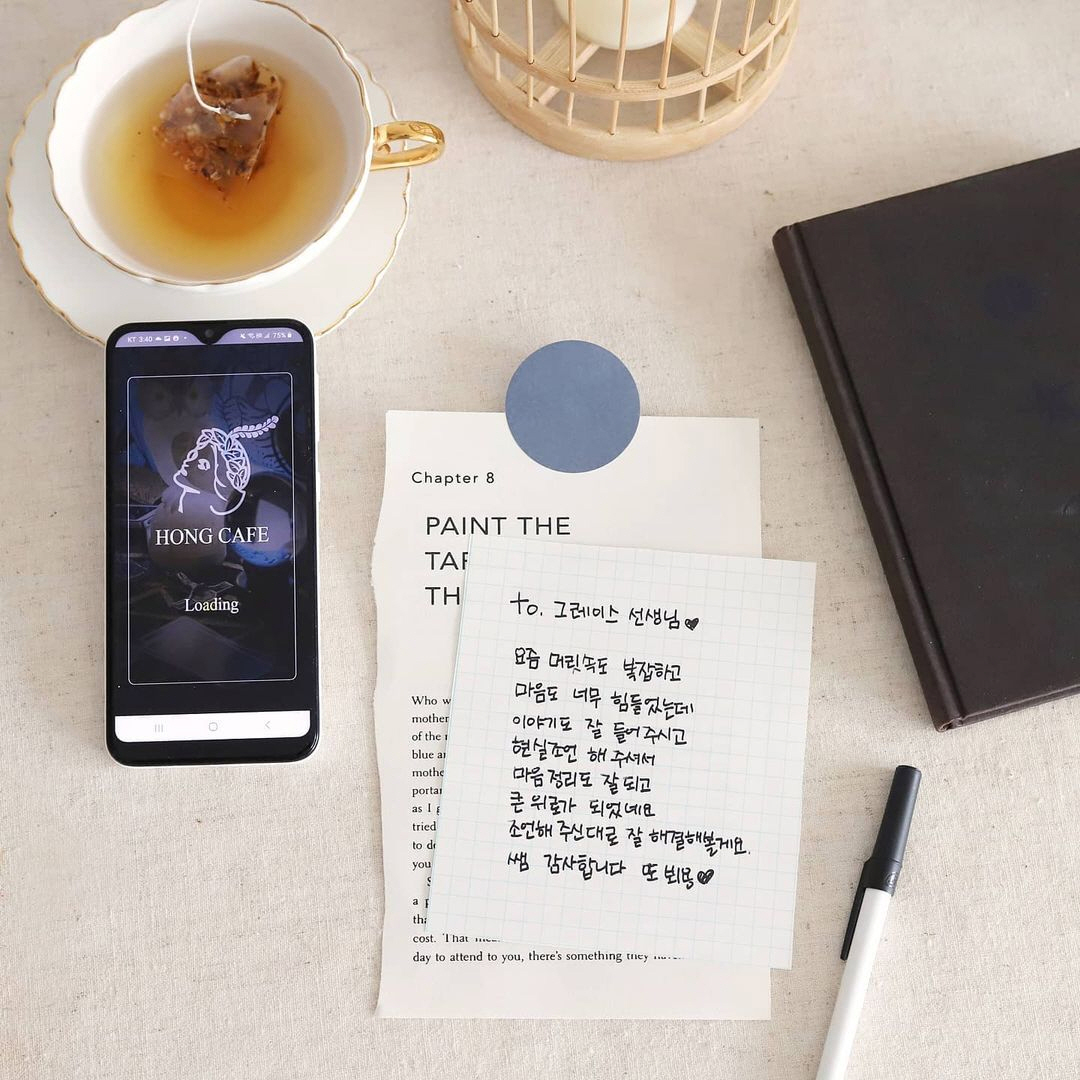 KT 3:40
75%
HONG CAFE
Loading
Chapter 8
PAINT THE
TH
to. 그레이스 선생님♥
요즘 머릿속도 복잡하고
마음도 너무 힘들었는데
이야기도 잘 들어주시고
현실조언 해 주셔서
마음정리도 잘되고
큰 위로가 되었네요
조언해 주신대로 잘 해결해볼게요.
쌤 감사합니다 또 뵈용♥
Who
mother
of the
blue
mothe
as I
tried
to
you
a
cost. That
day to attend to you, there's something they